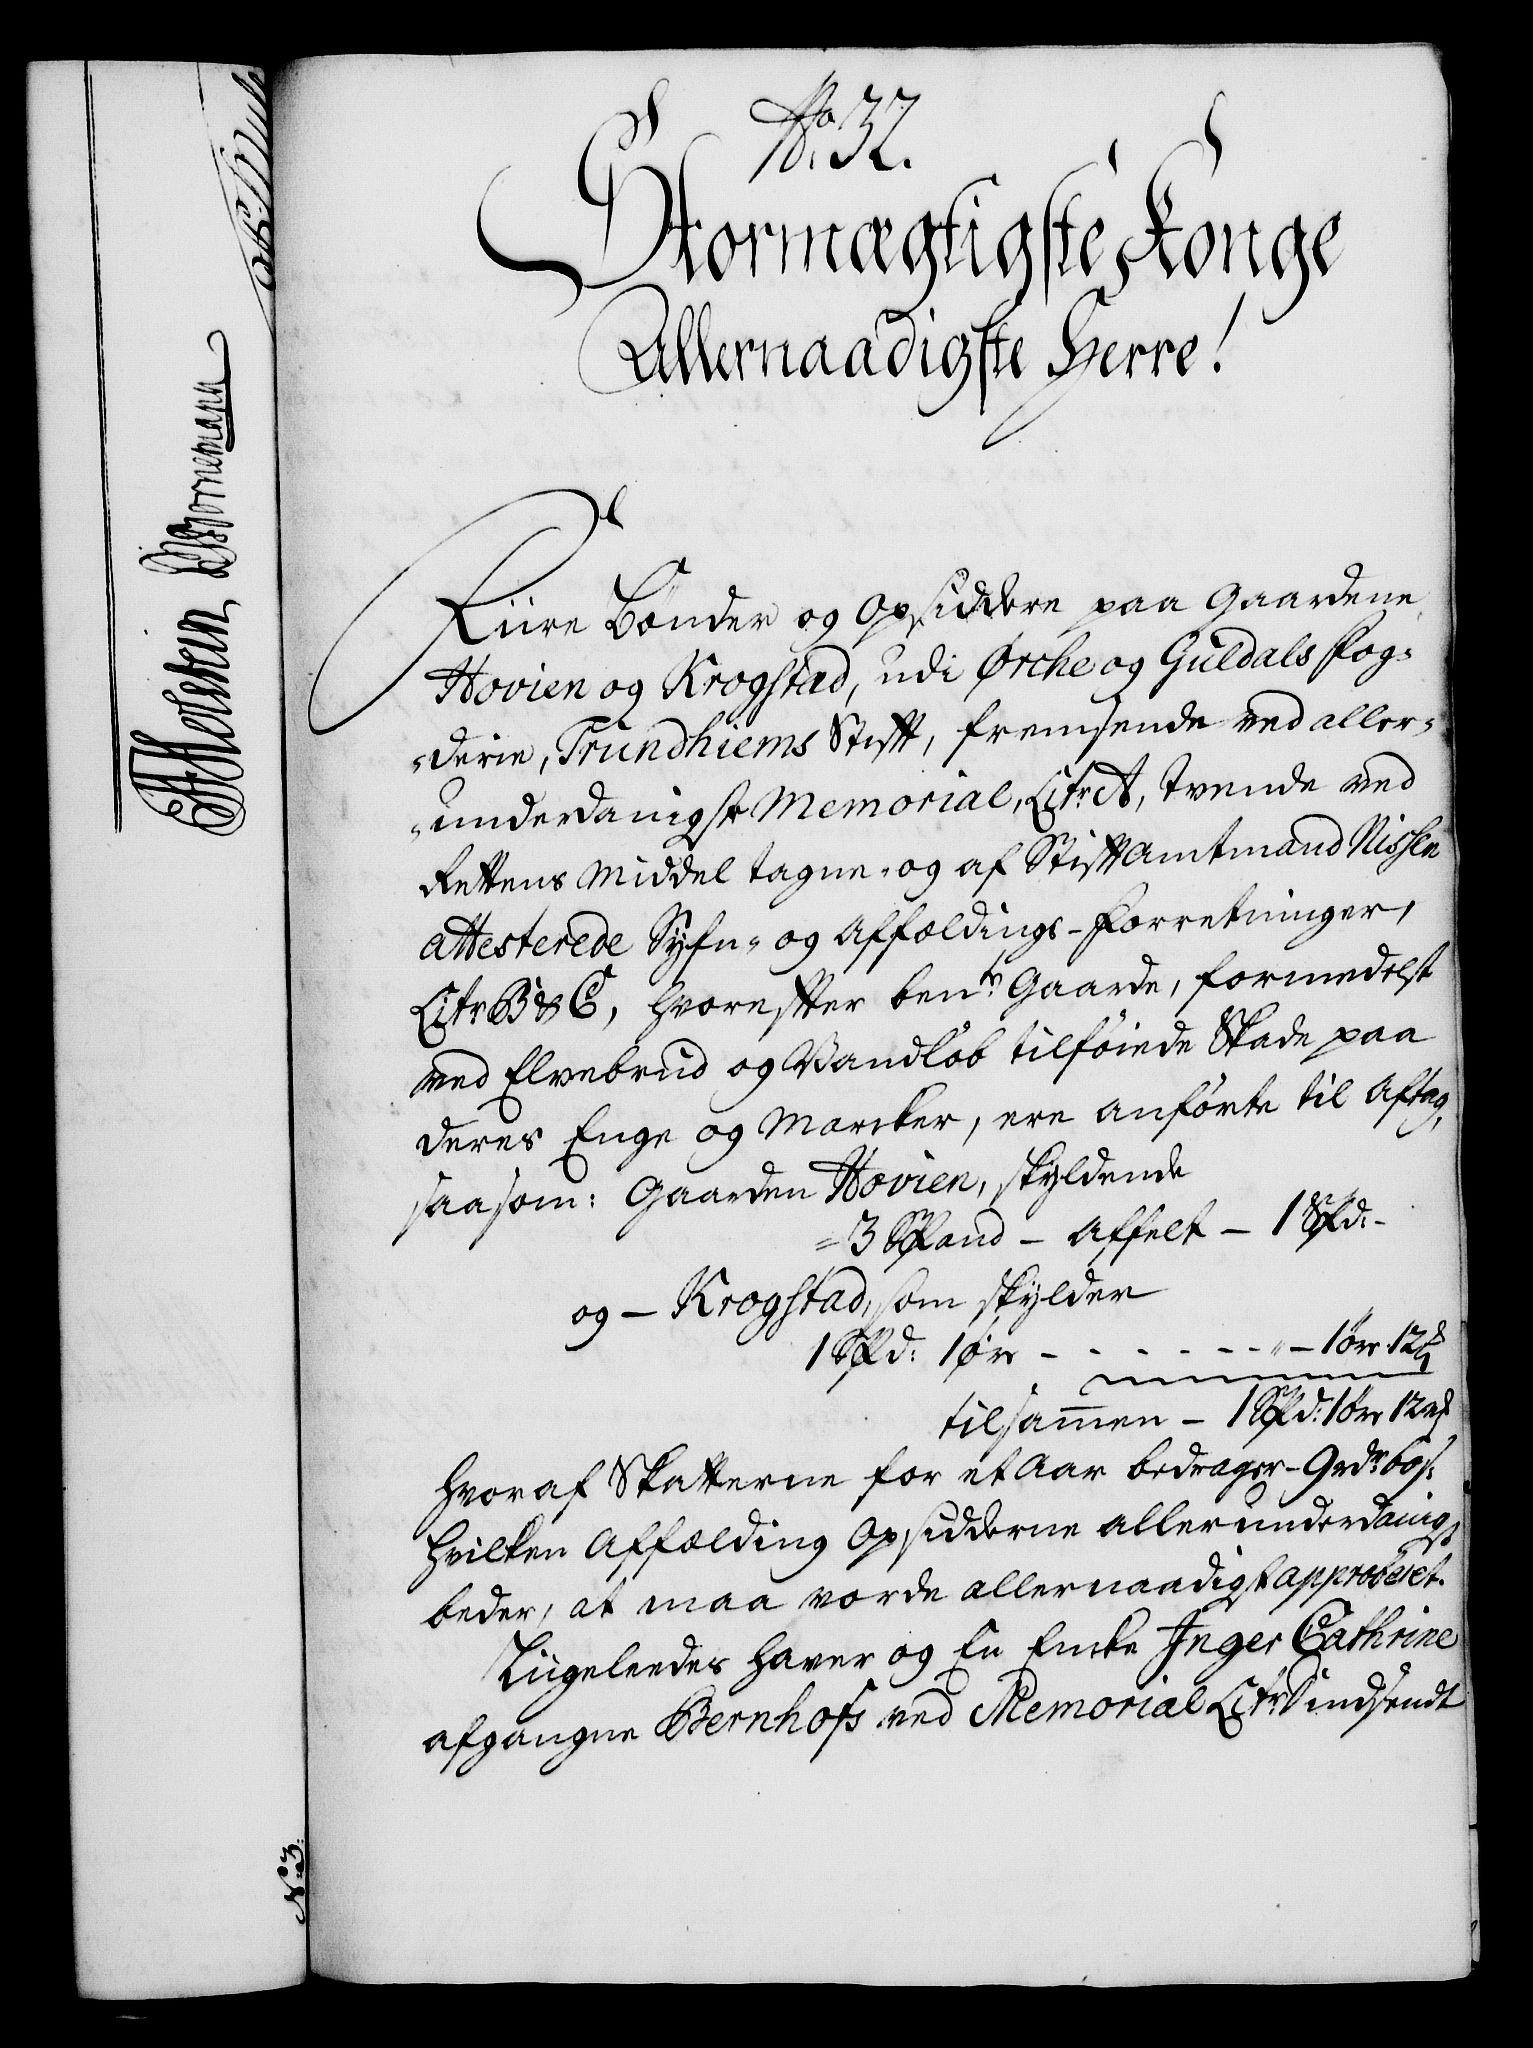 No. 32.
Stormægtigste Konge
Allernaadigste Herre!
Fiire Bønder og Opsiddere paa Gaardene
Hovien og Krogstad, udi Ørche og Guldals Fog=
=derie, Trundhiems Stift, fremsende ved aller=
=underdanigst Memorial, Litr. A, tvende ved
Rettens Middel tagne- og af Stiftamtmand Nissen
attesterede Syfn- og Affældings-Forretninger,
Litr B & C, hvorefter bente Gaarde, formedelst
ved Elvebrud og Vandløb tilføiede Skade paa
deres Enge og Marcker, ere anførte til Aftag,
saasom: Gaarden Hovien, skyldende
=3 Spand - Affelt - 1 Spd: -
og - Krogstad, som skylder
1 Spd: 1 øre - - - - - - " - 1 øre 12
tilsam̄en - 1 Spd: 1 øre 12
hvoraf Skatterne for et Aar bedrager - 9 rdr. 60 s:
hvilken Affælding Opsidderne allerunderdanigst
beder, at maa vorde allernaadigst approberet.
Liigeleedes haver og En Encke Inger Cathrine
afgangne Bernhofs ved Memorial Litr D indsendt
Bornemann
No. 3.